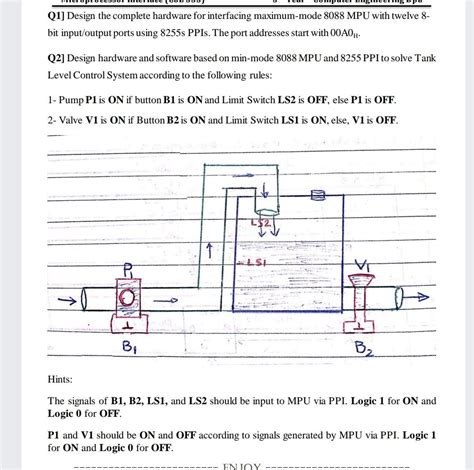 Microprocessor Interface (CoE 333) 3ʳᵈ Year Computer Engineering Dpt.
Q1] Design the complete hardware for interfacing maximum-mode 8088 MPU with twelve 8-
bit input/output ports using 8255s PPIs. The port addresses start with 00A0H.
Q2] Design hardware and software based on min-mode 8088 MPU and 8255 PPI to solve Tank
Level Control System according to the following rules:
1- Pump P1 is ON if button B1 is ON and Limit Switch LS2 is OFF, else P1 is OFF.
2- Valve V1 is ON if Button B2 is ON and Limit Switch LS1 is ON, else, V1 is OFF.
LS2
LS1
P1
V1
B1
B2
Hints:
The signals of B1, B2, LS1, and LS2 should be input to MPU via PPI. Logic 1 for ON and
Logic 0 for OFF.
P1 and V1 should be ON and OFF according to signals generated by MPU via PPI. Logic 1
for ON and Logic 0 for OFF.
ENJOY